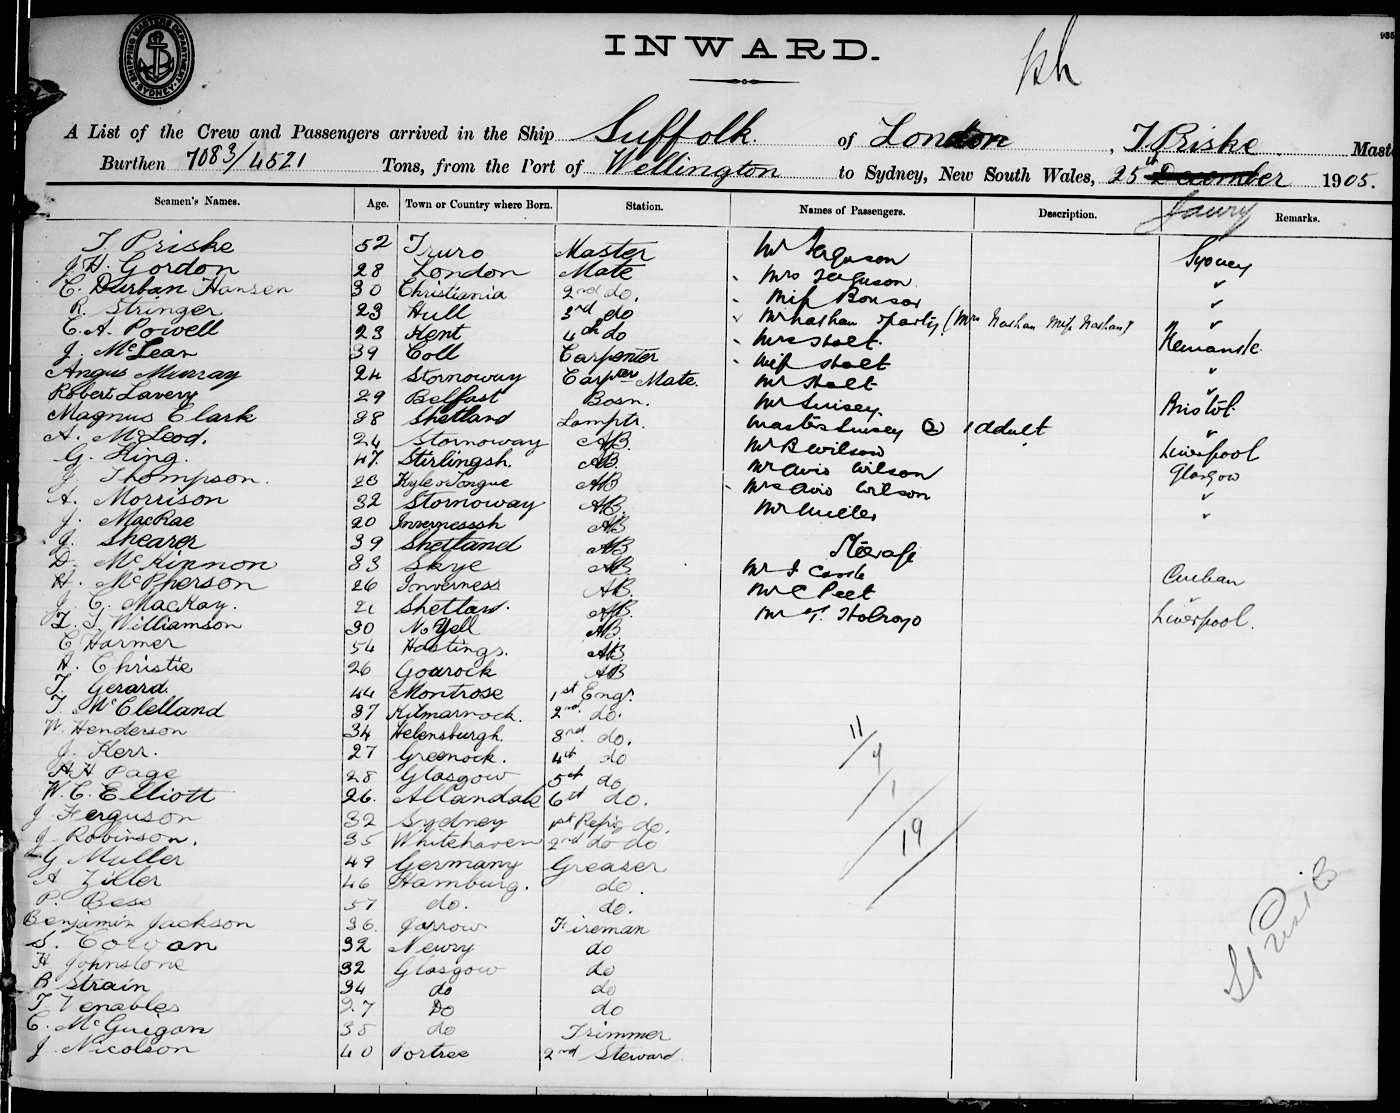 INWARD.
SHIPPING MASTERS DEPARTMENT SYDNEY
A List of the Crew and Passengers arrived in the Ship Suffolk of London, T Priske Maste
Burthen 7083/4521 Tons, from the Port of Wellington to Sydney, New South Wales, 25th December 1905.
Seamen's Names. Age. Town or Country where Born. Station. Names of Passengers. Description. Remarks.
T. Priske 52 Truro Master Mr Ferguson Sydney
J.H. Gordon 28 London Mate Mrs Ferguson "
C. Durban Hansen 30 Christiania 2nd do. Miss Bonsor "
R. Stringer 23 Hull 3rd do Mr Nathan & party (Mrs Nathan Miss Nathan) "
C.A. Powell 23 Kent 4th do Mrs Stalt Newcastle
J. McLean 39 Coll Carpenter Miss Stalt "
Angus Murray 24 Stornoway Carpters Mate. Mr Stalt "
Robert Lavery 29 Belfast Bosn. Mr Bristol
Magnus Clark 38 Shetland Lamptr. Masters (2) 1 adult "
A. McLeod. 24 Stornoway AB. Mr B Wilson Liverpool
G. King. 47. Stirlingsh. AB. Mr Avis Wilson Glasgow
J Thompson. 23 Kyle of Tongue AB Mrs Avis Wilson "
A. Morrison 32 Stornoway AB. Mr Miller "
J. MacRae 20 Invernesssh AB
J. Shearer 39 Shetland AB Steerage
D. McKinnon 33 Skye AB Mr J Castle
H. McPherson 26 Inverness AB. Mr C Peet "
J. C. MacKay. 21 Shetland. AB. Mr T. Holroyd Liverpool.
T. J. Williamson 30 No Yell AB.
C Harmer 54 Hastings. AB
A. Christie 26 Gourock AB
T. Gerard. 44 Montrose 1st Engr.
T. McClelland 37 Kilmarnock. 2nd. do.
W. Henderson 34 Helensburgh. 3rd. do.
J. Kerr. 27 Greenock. 4th do
A.H Page 28 Glasgow 5th do
W.C. Elliott 26. Allandale 6th do.
J. Ferguson 32 Sydney 1st Refrig do.
J. Robinson. 35 Whitehaven 2nd do do
G Muller 49 Germany Greaser
A Ziller 46 Hamburg. do.
P. Bess 57 do. do.
Benjamin Jackson 36. Jarrow Fireman
S. Cowan 32 Newry do
H Johnstone 32 Glasgow do
R Strain 34 do do
T. Venables 27 Do do
C. McGuigan 35 do Trimmer
J. Nicolson 40 Portree 2nd Steward.
11/4/1/19